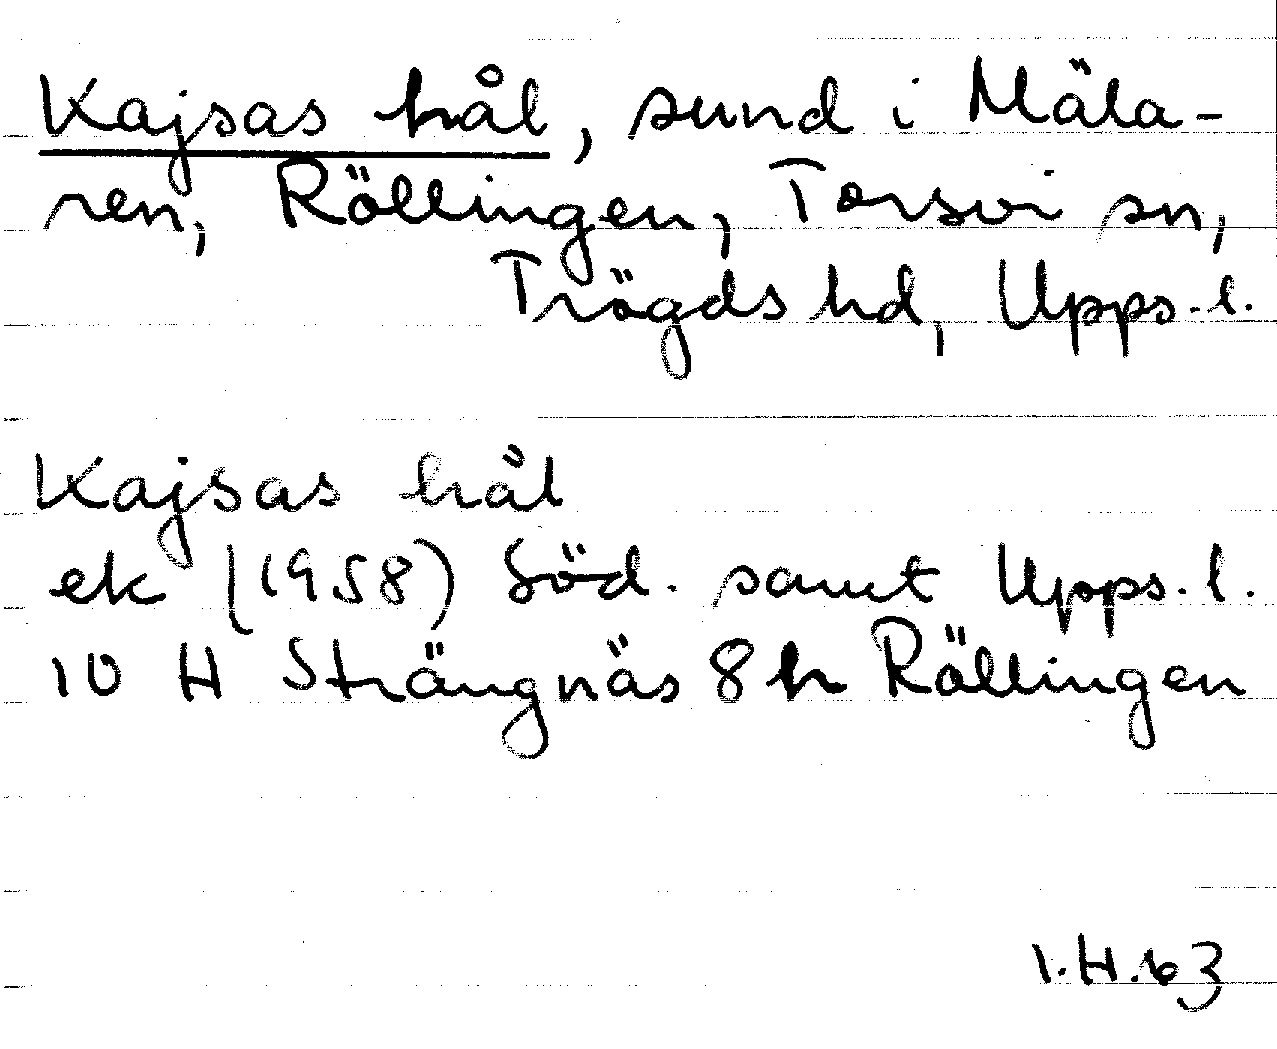 Kajsas hål, sund i Mäla-
ren, Röllingen, Torsvi sn,
Trögds hd, Upps.l.
Kajsas hål
ek (1958) Söd. samt Upps.l.
10 H Strängnäs 8 h Röllingen
I.H.63